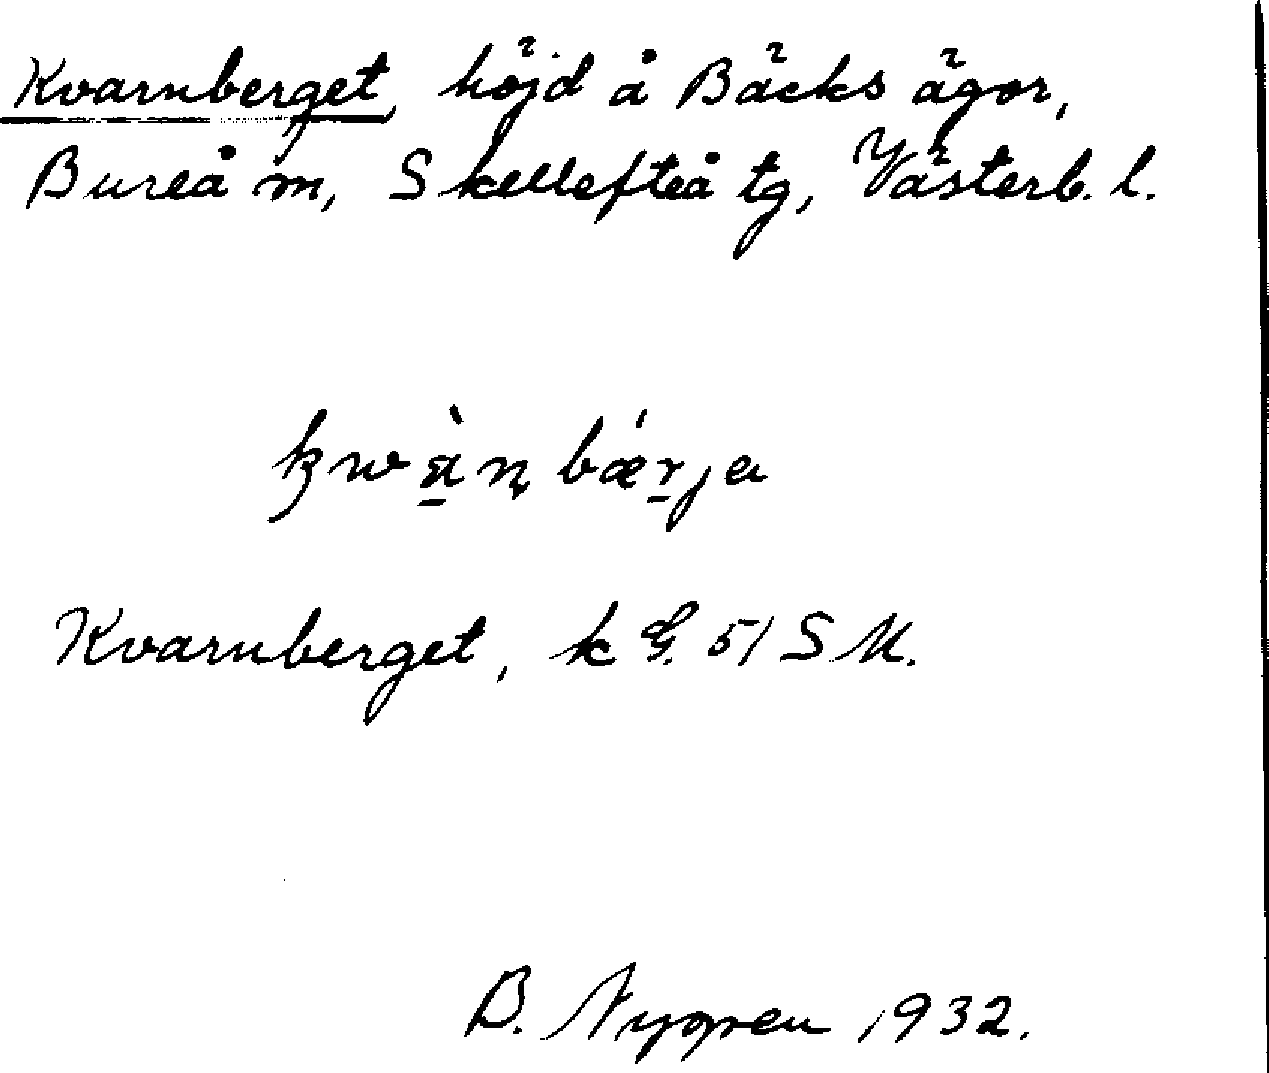 Kvarnberget, höjd å Bäcks ägor,
Bureå m, Skellefteå tg, Västerb. l.
Kvarnberget, k G. 51 S M.
B. Nygren 1932.